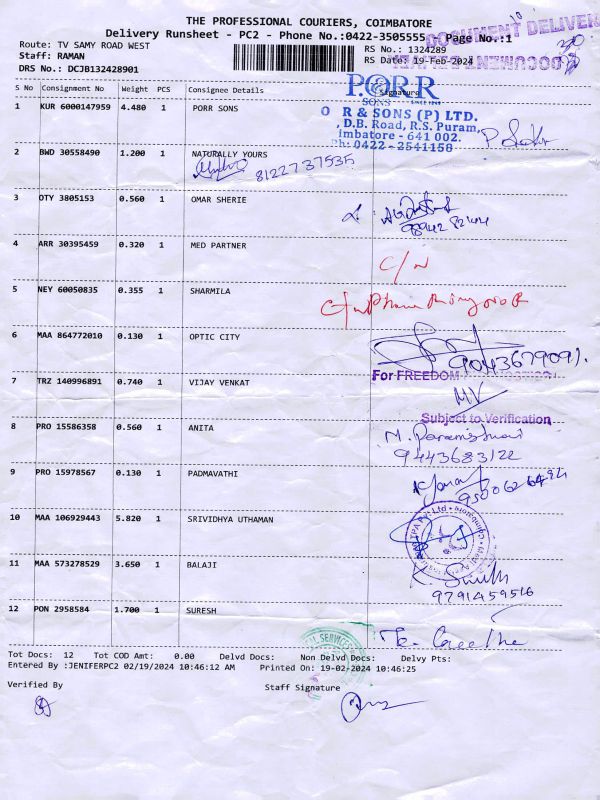 THE PROFESSIONAL COURIERS, COIMBATORE
Delivery Runsheet - PC2 - Phone No.:0422-3505555 Page No.:1
DOCUMENT DELIVER
Route: TV SAMY ROAD WEST RS No.: 1324289
Staff: RAMAN RS Date: 19-Feb-2024
DRS No.: DCJB132428901
S No Consignment No Weight PCS Consignee Details Signature
P.OR.R
SONS
1 KUR 6000147959 4.480 1 PORR SONS
O R & SONS (P) LTD.
, D.B. Road, R.S. Puram,
imbatore - 641 002.
Ph: 0422 - 2541158
2 BWD 30558490 1.200 1 NATURALLY YOURS
8122737535
3 OTY 3805153 0.560 1 OMAR SHERIE
98942 82144
4 ARR 30395459 0.320 1 MED PARTNER
C/N
5 NEY 60050835 0.355 1 SHARMILA
6 MAA 864772010 0.130 1 OPTIC CITY
9043679091.
For FREEDOM
7 TRZ 140996891 0.740 1 VIJAY VENKAT
MV
Subject to Verification
8 PRO 15586358 0.560 1 ANITA
9443683122
9 PRO 15978567 0.130 1 PADMAVATHI
10 MAA 106929443 5.820 1 SRIVIDHYA UTHAMAN
11 MAA 573278529 3.650 1 BALAJI
9791459516
12 PON 2958584 1.700 1 SURESH
Tot Docs: 12 Tot COD Amt: 0.00 Delvd Docs: Non Delvd Docs: Delvy Pts:
Entered By :JENIFERPC2 02/19/2024 10:46:12 AM Printed On: 19-02-2024 10:46:25
Verified By Staff Signature